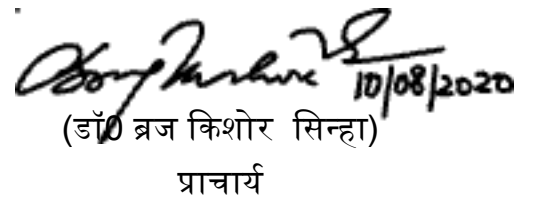 10/08/2020
(डॉ0 ब्रज किशोर सिन्हा)
प्राचार्य